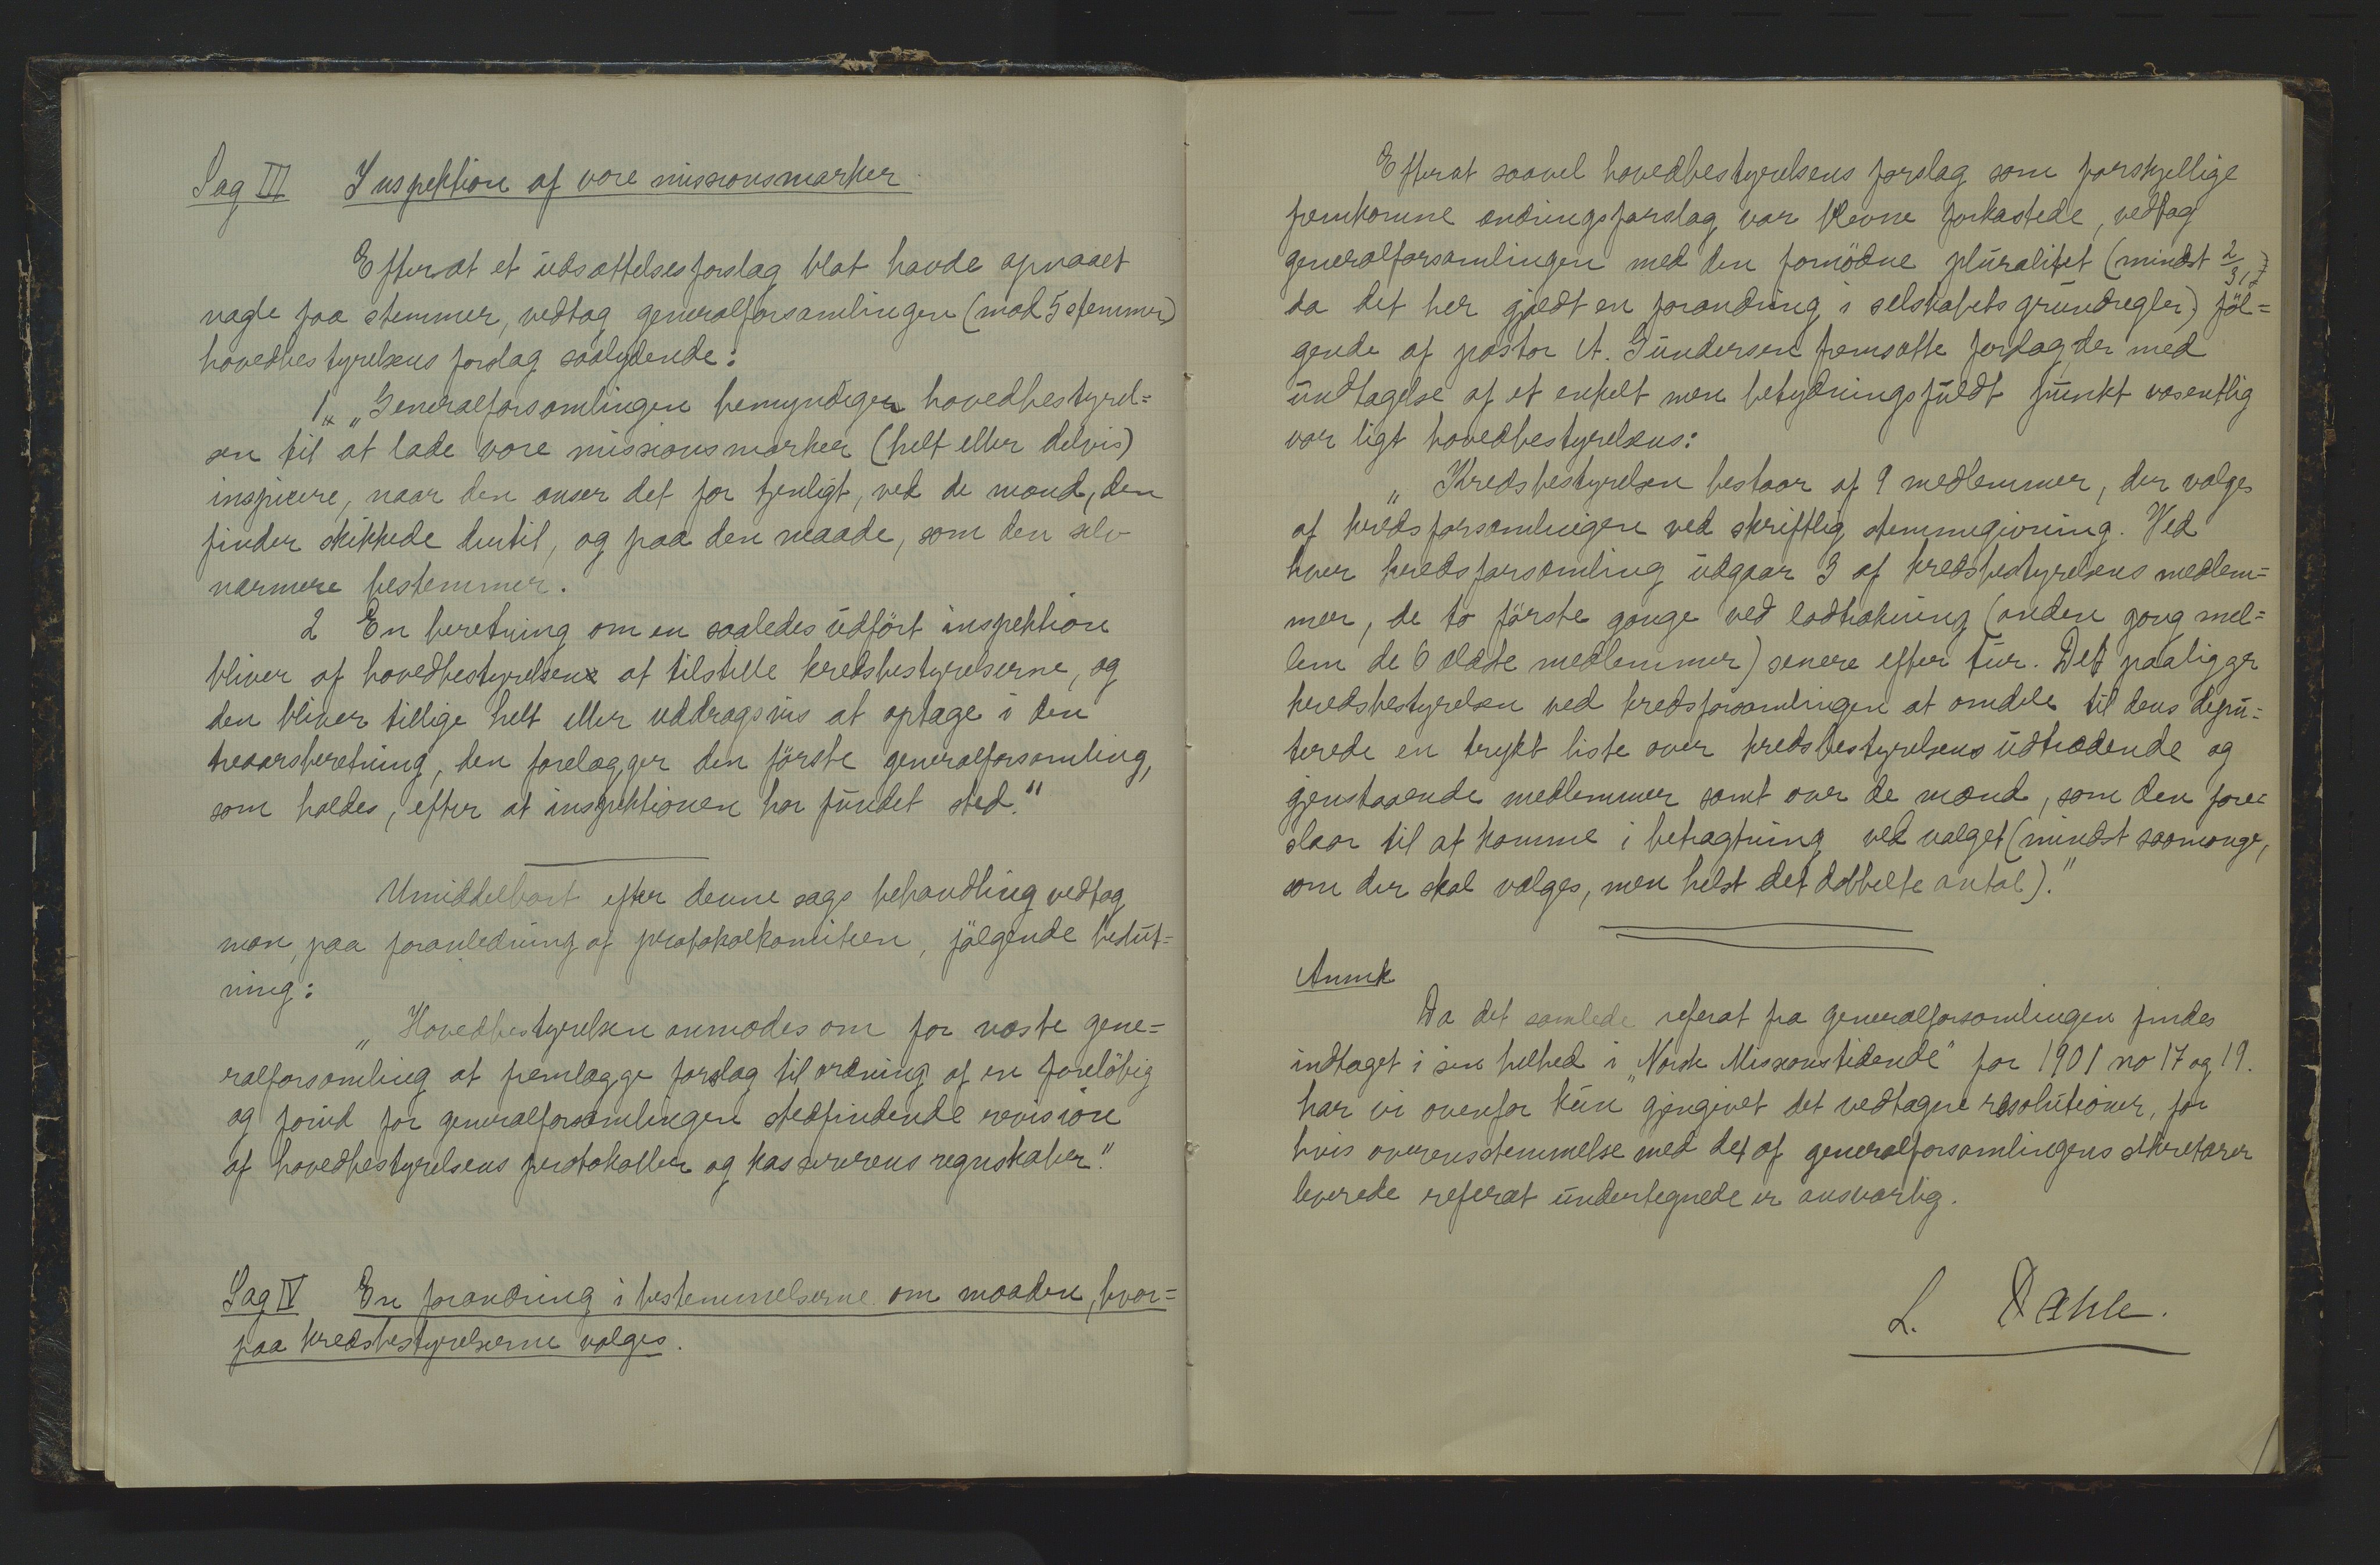 Sag III Inspektion af vore missionsmarker.
Efterat et udsættelsesforslag blot havde opnaaet
nogle faa stemmer, vedtog generalforsamlingen (mod 5 stemmer)
hovedbestyrelsens forslag saalydende:
1, „Generalforsamlingen bemyndiger hovedbestyrel=
sen til at lade vore missionsmarker (helt eller delvis)
inspicere, naar den anser det for tjenligt, ved de mænd, den
finder skikkede dertil, og paa den maade, som den selv
nærmere bestemmer.
2 En beretning om en saaledes udført inspektion
bliver af hovedbestyrelsen at tilstille kredsbestyrelserne, og
den bliver tillige helt eller uddragsvis at optage i den
treaarsberetning, den forelægger den første generalforsamling,
som holdes, efter at inspektionen har fundet sted."
Umiddelbart efter denne sags behandling vedtog
man, paa foranledning af protokolkomiteen, følgende beslut=
ning:
„Hovedbestyrelsen anmodes om for næste gene=
ralforsamling at fremlægge forslag til ordning af en foreløbig
og forud for generalforsamlingen stedfindende revision
af hovedbestyrelsens protokoller og kassererens regnskaber."
Sag IV En forandring i bestemmelserne om maaden, hvor=
paa kredsbestyrelserne vælges.
Efterat saavel hovedbestyrelsens forslag som forskjellige
fremkomne ændringsforslag var blevne forkastede, vedtog
generalforsamlingen med den fornødne pluralitet (mindst 2/3,
da det her gjældt en forandring i selskabets grundregler) føl=
gende af pastor A. Gundersen fremsatte forslag, der med
undtagelse af et enkelt men betydningsfuldt punkt væsentlig
var ligt hovedbestyrelsens:
„Kredsbestyrelsen bestaar af 9 medlemmer, der vælges
af kredsforsamlingen ved skriftlig stemmegivning. Ved
hver kredsforsamling udgaar 3 af kredsbestyrelsens medlem=
mer, de to første gange ved lodtrækning (anden gang mel=
lem de 6 ældste medlemmer) senere efter tur. Det paaligger
kredsbestyrelsen ved kredsforsamlingen at omdele til dens depu=
terede en trykt liste over kredsbestyrelsens udtrædende og
gjenstaaende medlemmer samt over de mænd, som den fore=
slaar til at komme i betragtning ved valget (mindst saamange,
som der skal vælges, men helst det dobbelte antal)."
Anmk
Da det samlede referat fra generalforsamlingen findes
indtaget i sin helhed i „Norsk Missionstidende" for 1901 no 17 og 19.
har vi ovenfor kun gjengivet det vedtagne resolutioner, for
hvis overensstemmelse med det af generalforsamlingens sekretærer
leverede referat undertegnede er ansvarlig.
L. Dahle.